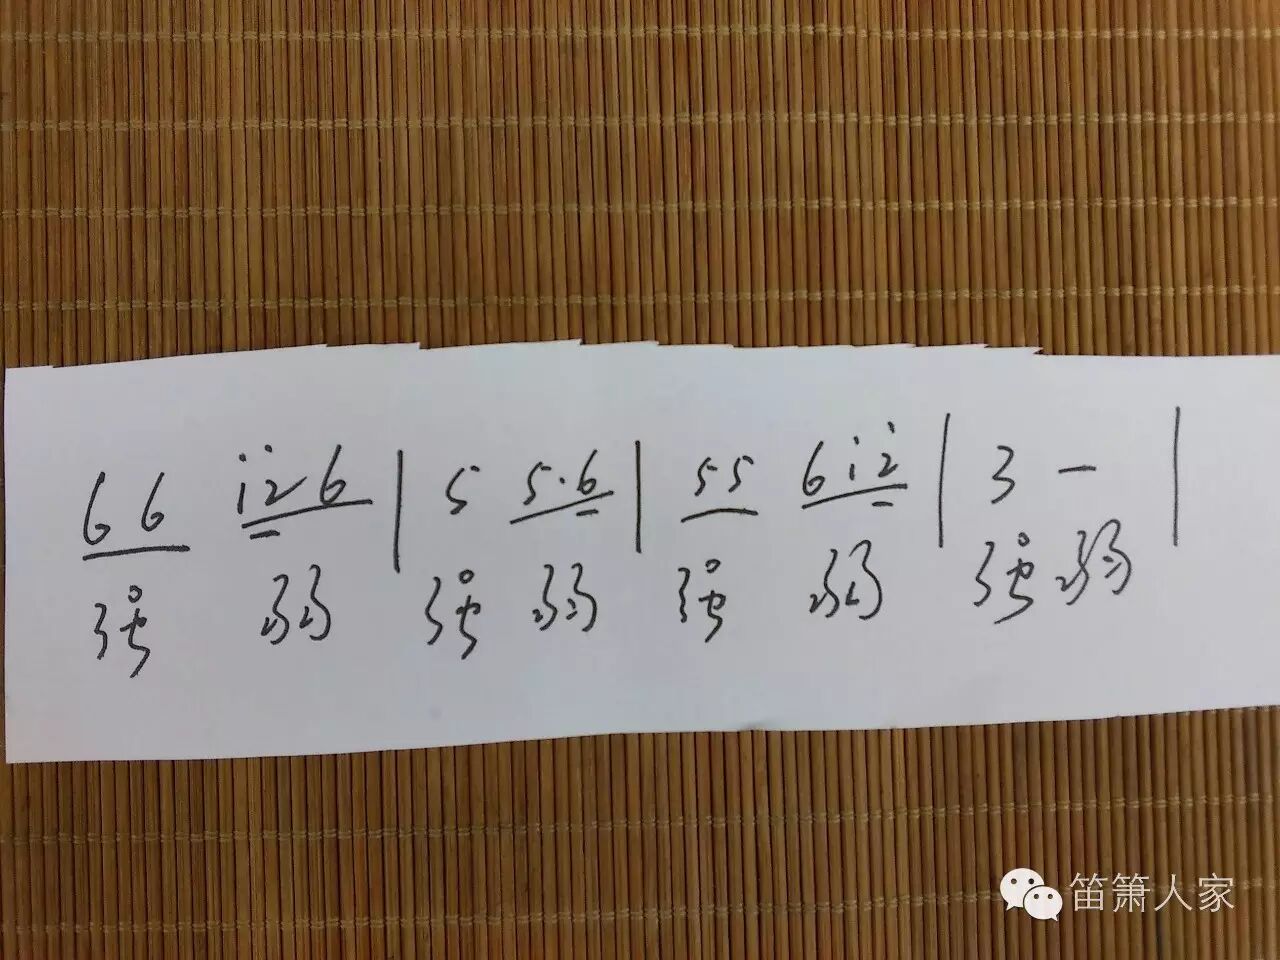 6 6 i̇ 2̇ 6 | 5 5·6 | 5 5 6 i̇ 2̇ | 3 － |
强 弱 强 弱 强 弱 强 弱
笛箫人家